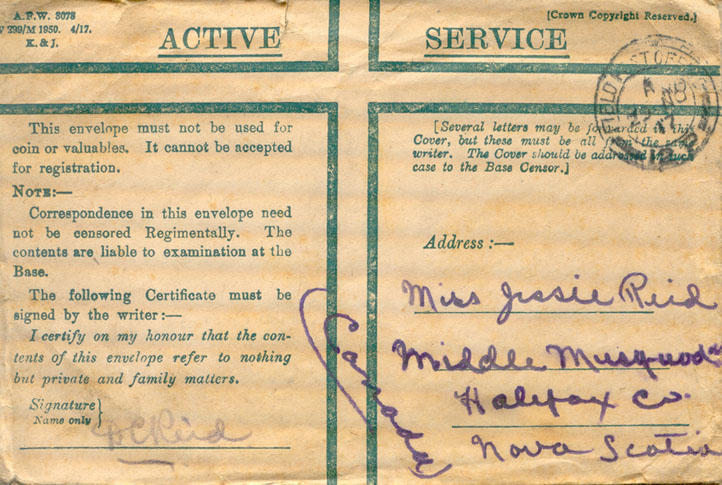 A.F.W. 3078
W 299/M 1950. 4/17.
K. & J.
[Crown Copyright Reserved.]
ACTIVE SERVICE
This envelope must not be used for
coin or valuables. It cannot be accepted
for registration.
NOTE:—
Correspondence in this envelope need
not be censored Regimentally. The
contents are liable to examination at the
Base.
The following Certificate must be
signed by the writer:—
I certify on my honour that the con-
tents of this envelope refer to nothing
but private and family matters.
Signature
Name only
Reid
[Several letters may be forwarded in this
Cover, but these must be all from the same
writer. The Cover should be addressed in such
case to the Base Censor.]
FIELD POST OFFICE
Address:—
Miss Jessie Reid
Middle Musquod
Halifax Co.
Nova Scotia
Canada